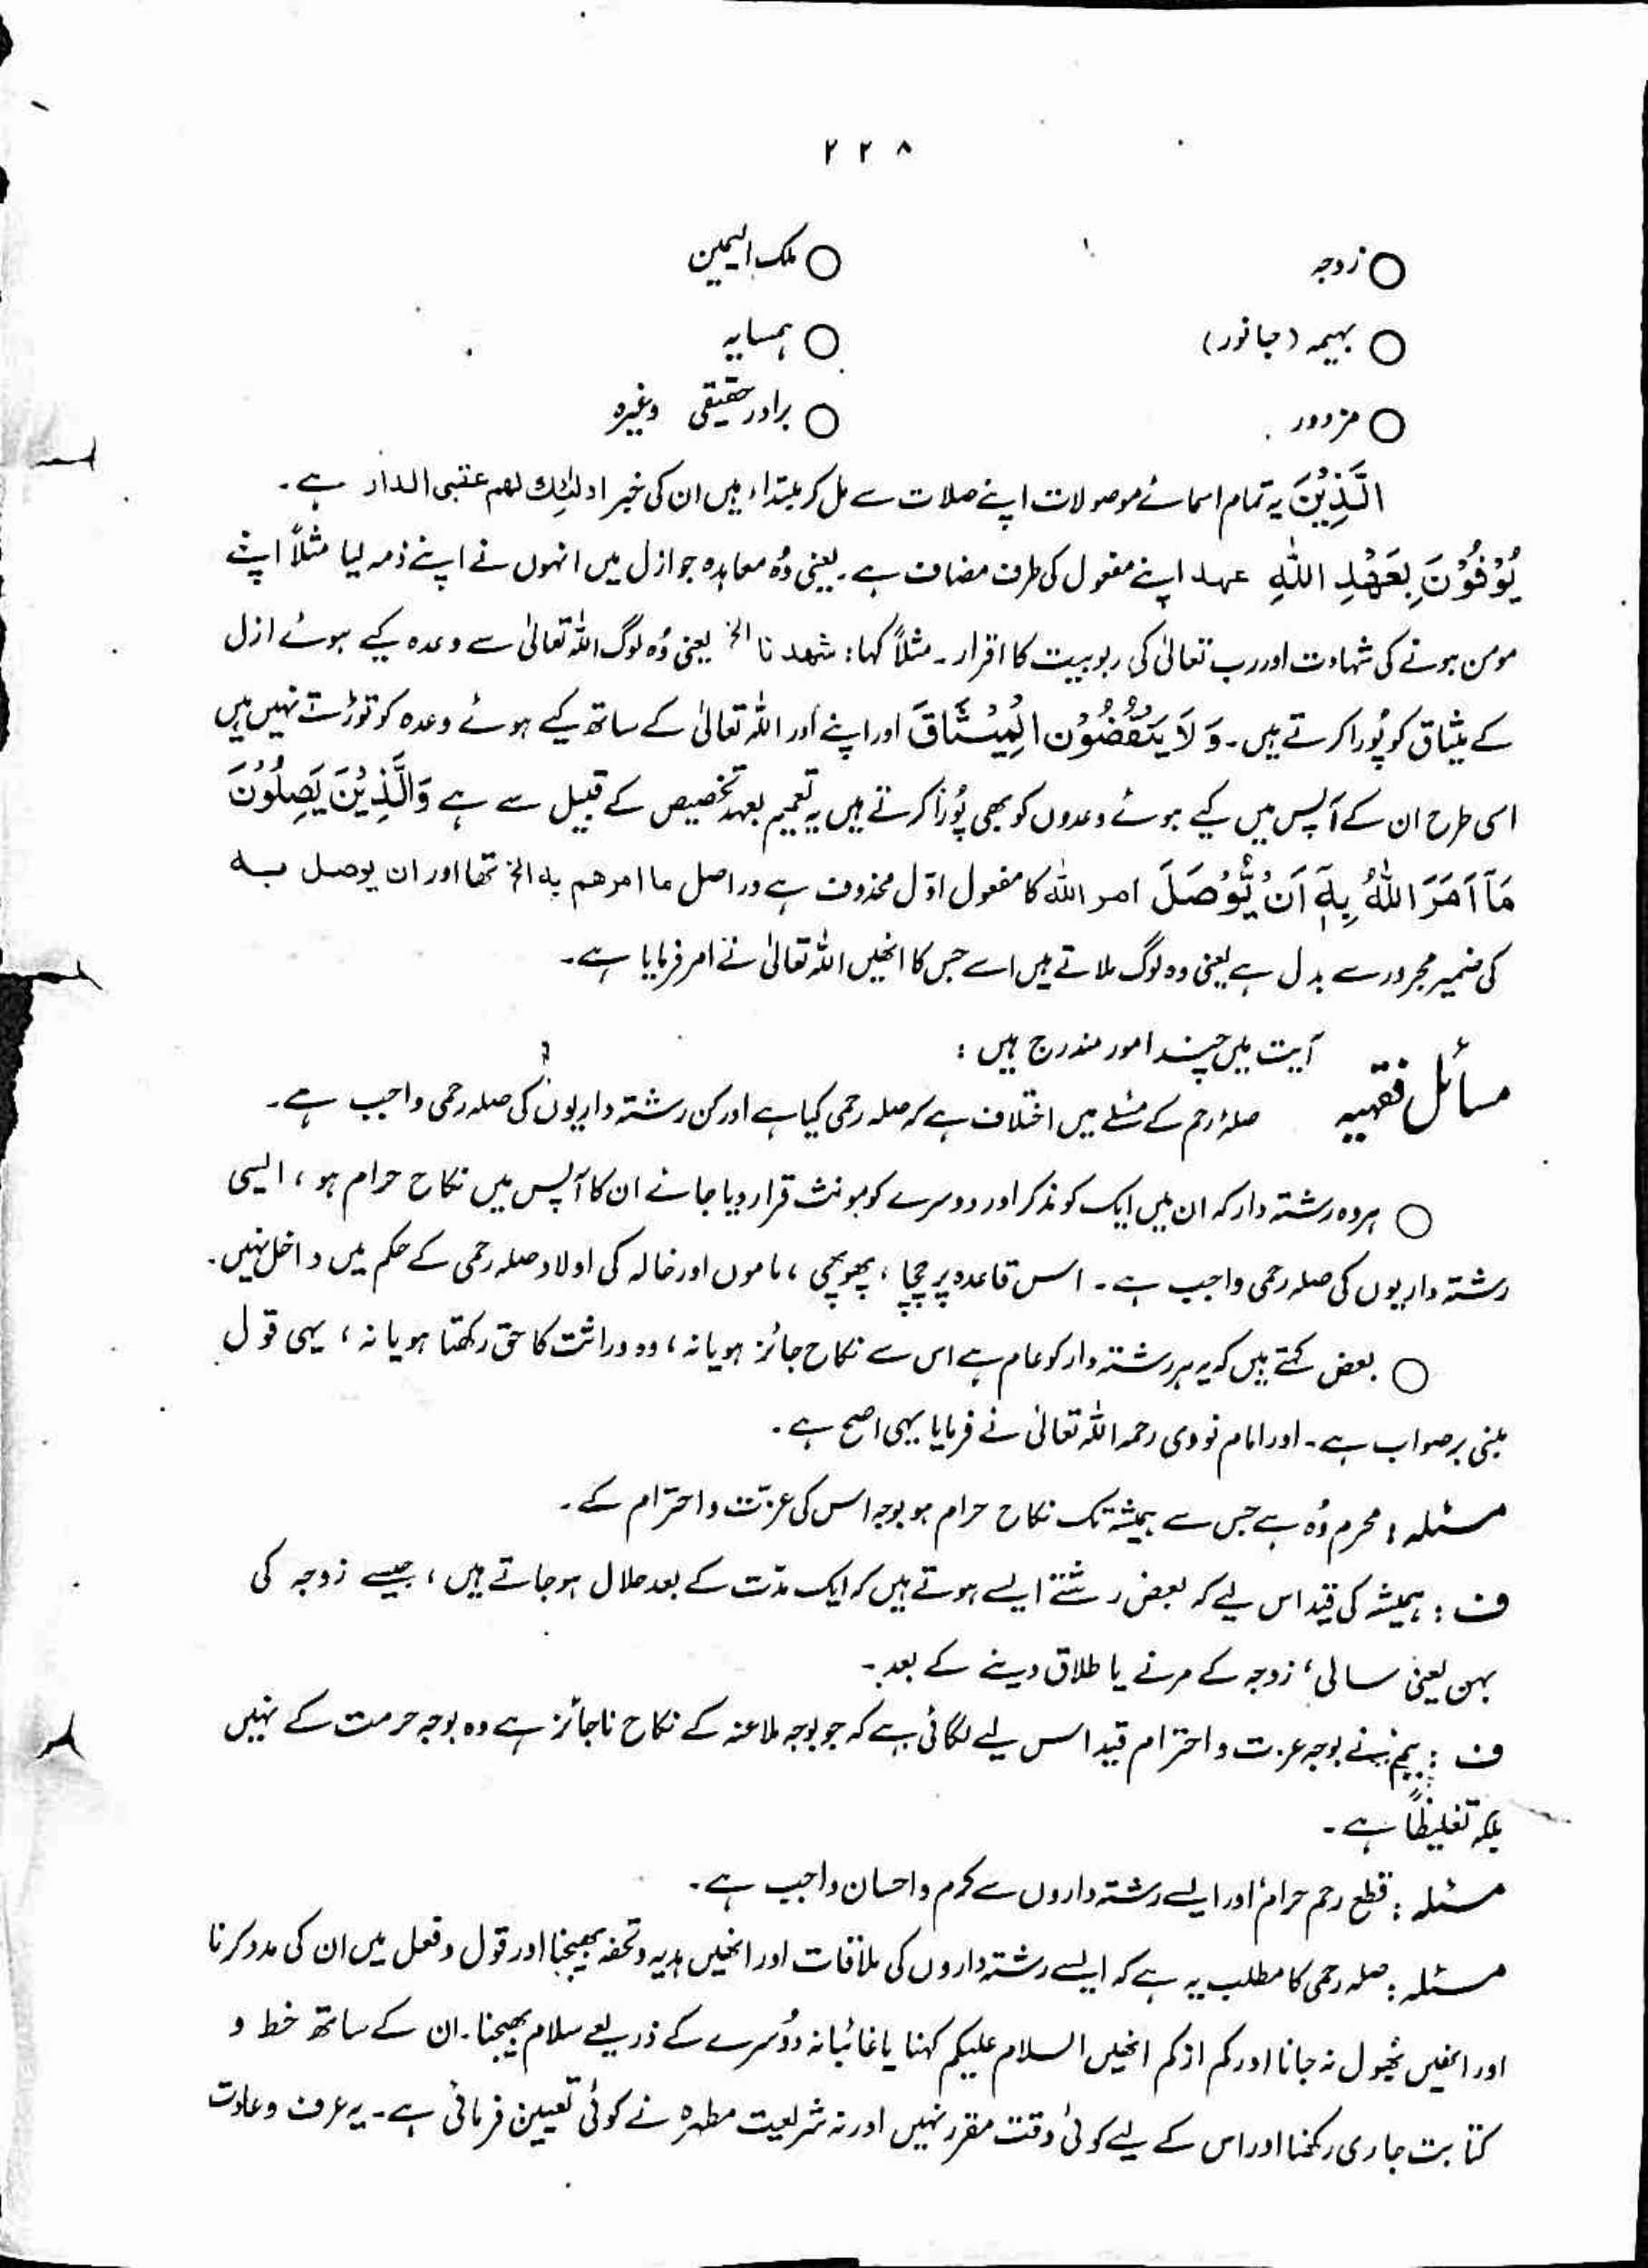 ۲۲۸
○ زوجہ ○ ملک الیمین
○ بہیمہ (جانور) ○ ہمسایہ
○ مزدور ○ برادر حقیقی وغیرہ
الَّذِیْنَ یہ تمام اسمائے موصولات اپنے صلات سے مل کر مبتداء ہیں ان کی خبر اولٰئِك لھم عقبی الدار ہے۔
یُوْفُوْنَ بِعَھْدِ اللّٰہِ عہد اپنے مفعول کی طرف مضاف ہے۔ یعنی وُہ معاہدہ جو ازل میں انہوں نے اپنے ذمہ لیا مثلاً اپنے
مومن ہونے کی شہادت اور رب تعالیٰ کی ربوبیت کا اقرار۔ مثلاً کہا: شھدنا الخ یعنی وُہ لوگ اللہ تعالیٰ سے وعدہ کیے ہوئے ازل
کے میثاق کو پُورا کرتے ہیں۔ وَلَا یَنْقُضُوْن الْمِیْثَاقَ اور اپنے اور اللہ تعالیٰ کے ساتھ کیے ہوئے وعدہ کو توڑتے نہیں ہیں
اسی طرح ان کے آپس میں کیے ہوئے وعدوں کو بھی پُورا کرتے ہیں یہ تعمیم بعد تخصیص کے قبیل سے ہے وَالَّذِیْنَ یَصِلُوْنَ
مَآ اَمَرَ اللّٰہُ بِہٖٓ اَنْ یُّوْصَلَ امر اللہ کا مفعول اوّل محذوف ہے دراصل ما امرھم بہ الخ تھا اور ان یوصل بہ
کی ضمیر مجرور سے بدل ہے یعنی وہ لوگ ملاتے ہیں اسے جس کا انھیں اللہ تعالیٰ نے امر فرمایا ہے۔
مسائل فقہیہ آیت میں چند امور مندرج ہیں :
صلۂ رحم کے مسئلے میں اختلاف ہے کہ صلہ رحمی کیا ہے اور کن رشتہ داریوں کی صلہ رحمی واجب ہے۔
○ ہر وہ رشتہ دار کہ ان میں ایک کو مذکر اور دوسرے کو مونث قرار دیا جائے ان کا آپس میں نکاح حرام ہو، ایسی
رشتہ داریوں کی صلہ رحمی واجب ہے۔ اس قاعدہ پر چچا، پھوپھی، ماموں اور خالہ کی اولاد صلہ رحمی کے حکم میں داخل نہیں۔
○ بعض کہتے ہیں کہ یہ ہر رشتہ دار کو عام ہے اس سے نکاح جائز ہو یا نہ، وہ وراثت کا حق رکھتا ہو یا نہ، یہی قول
مبنی بر صواب ہے۔ اور امام نووی رحمہ اللہ تعالیٰ نے فرمایا یہی اصح ہے۔
مسئلہ : محرم وُہ ہے جس سے ہمیشہ تک نکاح حرام ہو بوجہ اس کی عزّت و احترام کے۔
ف : ہمیشہ کی قید اس لیے کہ بعض رشتے ایسے ہوتے ہیں کہ ایک مدّت کے بعد حلال ہو جاتے ہیں، جیسے زوجہ کی
بہن یعنی سالی، زوجہ کے مرنے یا طلاق دینے کے بعد۔
ف : ہم نے بوجہ عزت و احترام قید اس لیے لگائی ہے کہ جو بوجہ ملاعنہ کے نکاح ناجائز ہے وہ بوجہ حرمت کے نہیں
بلکہ تغلیظاً ہے۔
مسئلہ : قطع رحم حرام اور ایسے رشتہ داروں سے کرم و احسان واجب ہے۔
مسئلہ : صلہ رحمی کا مطلب یہ ہے کہ ایسے رشتہ داروں کی ملاقات اور انھیں ہدیہ و تحفہ بھیجنا اور قول و فعل میں ان کی مدد کرنا
اور انھیں بھُول نہ جانا اور کم از کم انھیں السلام علیکم کہنا یا غائبانہ دُوسرے کے ذریعے سلام بھیجنا۔ ان کے ساتھ خط و
کتابت جاری رکھنا اور اس کے لیے کوئی وقت مقرر نہیں اور نہ شریعت مطہرہ نے کوئی تعیین فرمائی ہے۔ یہ عرف و عادت